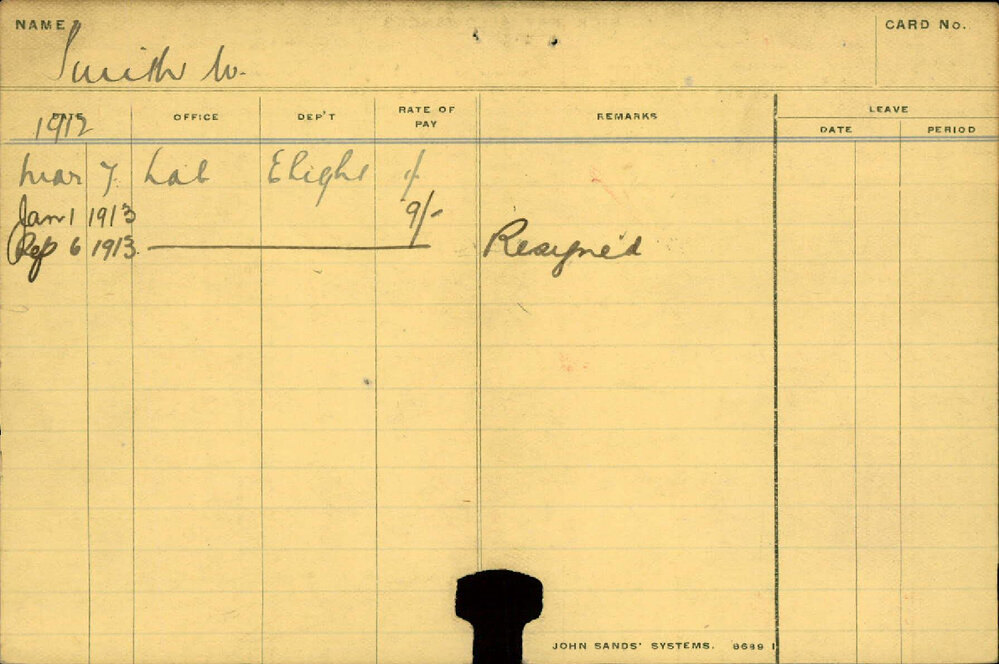 NAME
CARD No.
Smith W.
DATE OFFICE DEP'T RATE OF PAY REMARKS LEAVE
DATE PERIOD
1912
Mar 7 Lab Elight
Jan 1 1913 9/-
Sep 6 1913 Resigned
JOHN SANDS' SYSTEMS. 8689